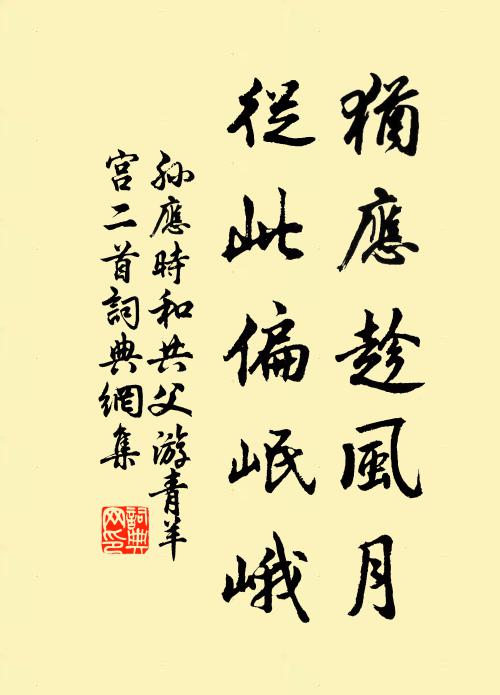 猶應趁風月
從此偏岷峨
孫應時和共父游青羊
宮二首詞典網集
詞典
网印